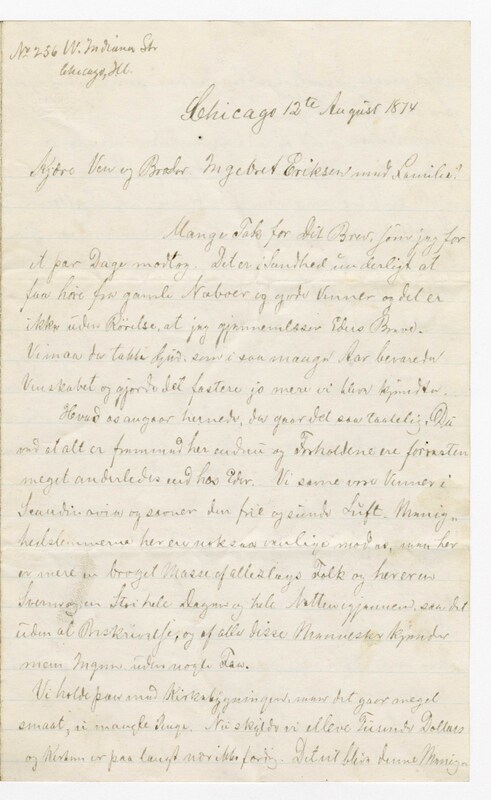 No 256 W. Indiana Str
Chicago, Ill.
Chicago 12te August 1874
Kjære Ven og Broder Ingebret Eriksen med Familie!
Mange Tak for dit Brev, som jeg for
et par Dage modtog. Det er i Sandhed underligt at
faa høre fra gamle Naboer og gode Venner og det er
ikke uden Rörelse, at jeg gjennemlæser Eders Breve.
Vi maa da takke Gud, som i saa mange Aar bevarede
Venskabet og gjorde det fastere jo mere vi blive kjendte.
Hvad os angaar hernede, da gaar det saa taalelig. Du
ved at alt er fremmed her endnu og Forholdene ere forresten
meget anderledes end hos Eder. Vi savne vore Venner i
Scandinavia og savner den frie og sunde Luft. Menig-
hedslemmerne her ere nok saa venlige mod os, men her
er mere en broget Masse af alleslags Folk og her er en
Sværmen og en Støi hele Dagen og hele Natten igjennem, saa det
uden al Beskrivelse, og af alle disse Mennesker kjender
men Ingen uden nogle Faa.
Vi holde paa med Kirkebygningen, men det gaar meget
smaat, vi mangle Penge. Nu skylde vi elleve Tusende Dollars
og Kirken er paa langt nær ikke færdig. Det vil blive denne Menig-